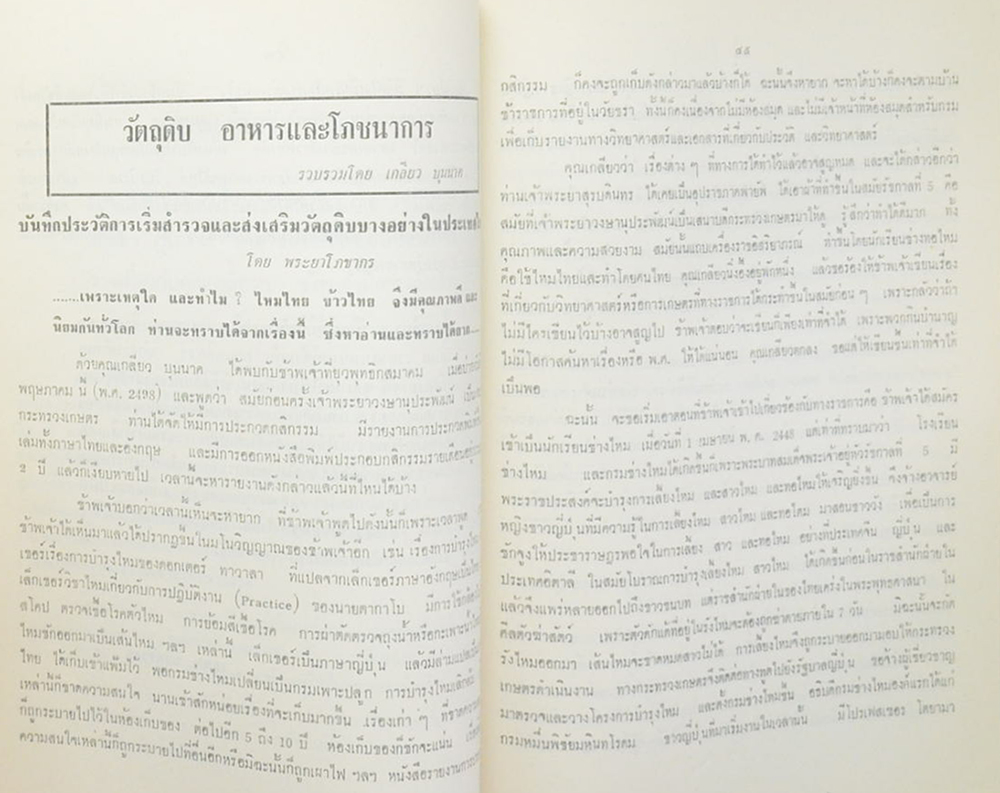 วัตถุดิบ อาหารและโภชนาการ
รวบรวมโดย เกลียว บุนนาค
บันทึกประวัติการเริ่มสำรวจและส่งเสริมวัตถุดิบบางอย่างในประเทศ
โดย พระยาโภชากร
.......เพราะเหตุใด และทำไม ? ไหมไทย ข้าวไทย จึงมีคุณภาพดีและ
นิยมกันทั่วโลก ท่านจะทราบได้จากเรื่องนี้ ซึ่งหาอ่านและทราบได้ยาก.....
ด้วยคุณเกลียว บุนนาค ได้พบกับข้าพเจ้าที่ยุวพุทธิกสมาคม เมื่อ
พฤษภาคม นี้ (พ.ศ. 2498) และพูดว่า สมัยก่อนครั้งเจ้าพระยาวงษานุประพัฒน์
กระทรวงเกษตร ท่านได้จัดให้มีการประกวดกสิกรรม มีรายงานการประกวด
เล่มทั้งภาษาไทยและอังกฤษ และมีการออกหนังสือพิมพ์ประกอบกสิกรรมรายเดือน
2 ปี แล้วก็เงียบหายไป เวลานี้จะหารายงานดังกล่าวแล้วนี้ที่ไหนได้บ้าง
ข้าพเจ้าบอกว่าเวลานี้เห็นจะหายาก ที่ข้าพเจ้าพูดไปดังนั้นก็เพราะเวลาพูด
ข้าพเจ้าได้เห็นมาแล้วได้ปรากฏขึ้นในมโนวิญญาณของข้าพเจ้าอีก เช่น เรื่องการบำรุงไหม
เซอร์เรื่องการบำรุงไหมของดอกเตอร์ ทาวาลา ที่แปลจากเล็กเชอร์ภาษาอังกฤษเป็นไทย
เล็กเชอร์วิชาไหมเกี่ยวกับการปฏิบัติงาน (Practice) ของนายตากาโน มีการใช้กล้อง
สโคป ตรวจเชื้อโรคตัวไหม การย้อมสีเชื้อโรค การผ่าตัดตรวจถุงน้ำหรือกะเพาะน้ำ
ไหมชักออกมาเป็นเส้นไหม ฯลฯ เหล่านี้ เล็กเชอร์เป็นภาษาญี่ปุ่น แล้วมีล่ามแปลเป็น
ไทย ได้เก็บเข้าแฟ้มไว้ พอกรมช่างไหมเปลี่ยนเป็นกรมเพาะปลูก การบำรุงไหมเลิก
เหล่านี้ก็ขาดความสนใจ นานเข้าสักหน่อยเรื่องที่จะเก็บมากขึ้น เรื่องเก่า ๆ ที่ขาดความ
ก็ถูกระบายไปไว้ในห้องเก็บของ ต่อไปอีก 5 ถึง 10 ปี ห้องเก็บของก็ชักจะแน่น
ความสนใจเหล่านี้ก็ถูกระบายไปที่อื่นอีกหรือมิฉะนั้นก็ถูกเผาไฟ ฯลฯ หนังสือรายงานการ
๔๕
กสิกรรม ก็คงจะถูกเก็บดังกล่าวมาแล้วบ้างก็ได้ ฉะนั้นจึงหายาก จะหาได้บ้างก็คงจะตามบ้าน
ข้าราชการที่อยู่ในวัยชรา ทั้งนี้ก็คงเนื่องจากไม่มีห้องสมุด และไม่มีเจ้าหน้าที่ห้องสมุดสำหรับกรม
เพื่อเก็บรายงานทางวิทยาศาสตร์และเอกสารที่เกี่ยวกับประวัติ และวิทยาศาสตร์
คุณเกลียวว่า เรื่องต่าง ๆ ที่ทางการได้ทำไว้แล้วอาจสูญหมด และจะได้กล่าวอีกว่า
ท่านเจ้าพระยาสุรบดินทร ได้เคยเป็นอุปราชภาคพายัพ ได้เอาผ้าที่ทำขึ้นในสมัยรัชกาลที่ 5 คือ
สมัยที่เจ้าพระยาวงษานุประพัฒน์เป็นเสนาบดีกระทรวงเกษตรมาให้ดู รู้สึกว่าทำได้ดีมาก ทั้ง
คุณภาพและความสวยงาม สมัยนั้นแถบเครื่องราชอิสริยาภรณ์ ทำขึ้นโดยนักเรียนช่างทอไหม
คือใช้ไหมไทยและทำโดยคนไทย คุณเกลียวนิ่งอึ้งอยู่พักหนึ่ง แล้วขอร้องให้ข้าพเจ้าเขียนเรื่อง
ที่เกี่ยวกับวิทยาศาสตร์หรือการเกษตรที่ทางราชการได้กระทำขึ้นในสมัยก่อน ๆ เพราะกลัวว่าถ้า
ไม่มีใครเขียนไว้บ้างอาจสูญไป ข้าพเจ้าตอบว่าจะเขียนก็เพียงเท่าที่จำได้ เพราะพวกกินบำนาญ
ไม่มีโอกาสค้นหาเรื่องหรือ พ.ศ. ให้ได้แน่นอน คุณเกลียวตกลง ขอแต่ให้เขียนขึ้นเท่าที่จำได้
เป็นพอ
ฉะนั้น จะขอเริ่มเอาตอนที่ข้าพเจ้าเข้าไปเกี่ยวข้องกับทางราชการคือ ข้าพเจ้าได้สมัคร
เข้าเป็นนักเรียนช่างไหม เมื่อวันที่ 1 เมษายน พ.ศ. 2448 แต่เท่าที่ทราบมาว่า โรงเรียน
ช่างไหม และกรมช่างไหมได้เกิดขึ้นก็เพราะพระบาทสมเด็จพระเจ้าอยู่หัวรัชกาลที่ 5 มี
พระราชประสงค์จะบำรุงการเลี้ยงไหม และสาวไหม และทอไหมให้เจริญยิ่งขึ้น จึงจ้างอาจารย์
หญิงชาวญี่ปุ่นที่มีความรู้ในการเลี้ยงไหม สาวไหม และทอไหม มาสอนชาววัง เพื่อเป็นการ
ชักจูงให้ประชาราษฎรพอใจในการเลี้ยง สาว และทอไหม อย่างที่ประเทศจีน ญี่ปุ่น และ
ประเทศอิตาลี ในสมัยโบราณการบำรุงเลี้ยงไหม สาวไหม ได้เกิดขึ้นก่อนในราชสำนักฝ่ายใน
แล้วจึงแพร่หลายออกไปถึงชาวชนบท แต่ราชสำนักฝ่ายในของไทยเคร่งในพระพุทธศาสนา ใน
ศีลตัวฆ่าสัตว์ เพราะตัวดักแด้ที่อยู่ในรังไหมจะต้องถูกฆ่าตายภายใน 7 วัน มิฉะนั้นจะกัด
รังไหมออกมา เส้นไหมจะขาดหมดสาวไม่ได้ การเลี้ยงไหมจึงถูกระบายออกมามอบให้กระทรวง
เกษตรดำเนินงาน ทางกระทรวงเกษตรจึงติดต่อทางทูตไปยังรัฐบาลญี่ปุ่น ขอจ้างผู้เชี่ยวชาญ
มาตรวจและวางโครงการบำรุงไหม และตั้งกรมช่างไหมขึ้น อธิบดีกรมช่างไหมองค์แรกได้แก่
กรมหมื่นพิชัยมหินทโรดม ชาวญี่ปุ่นที่มาเริ่มงานในเวลานั้น มีโปรเฟสเซอร์ โตยามา